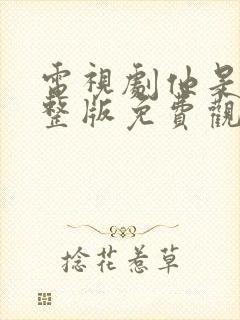 電視劇仙呆
整版免費觀
捻花惹草